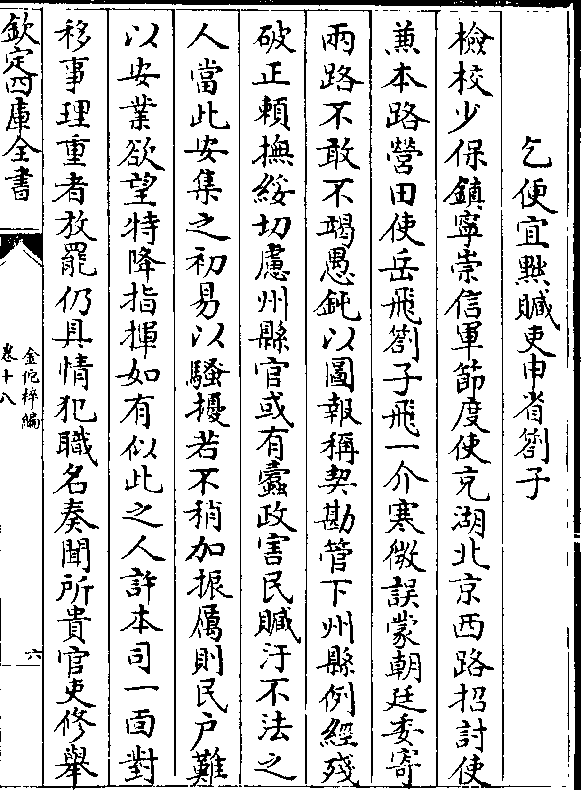 乞便宜黜贓吏申省劄子
檢校少保鎮寧崇信軍節度使充湖北京西路招討使
兼本路營田使岳飛劄子飛一介寒微誤蒙朝廷委寄
兩路不敢不竭愚鈍以圖報稱契勘管下州縣例經殘
破正賴撫綏切慮州縣官或有蠧政害民贓汙不法之
人當此安集之初易以騷擾若不稍加振厲則民户難
以安業欲望特降指揮如有似此之人許本司一面對
移事理重者放罷仍具情犯職名奏聞所貴官吏修舉
欽定四庫全書
金佗稡編
卷十八
六